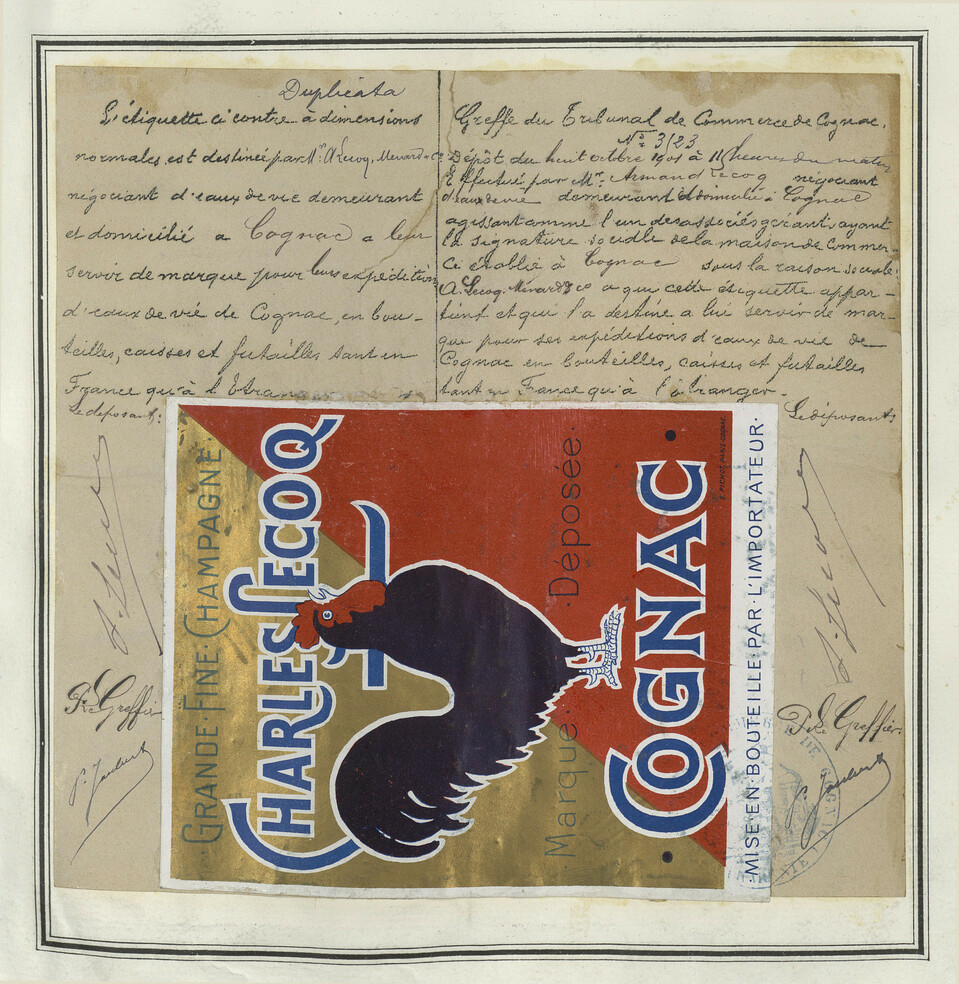 Duplicata
L'étiquette ci contre à dimensions
normales, est destinée par Mr. A. Lecoq, Menard & Co
négociant d'eaux de vie demeurant
et domicilié a Cognac a leur
servir de marque pour leurs expéditions
d'eaux de vie de Cognac, en bou-
teilles, caisses et futailles tant en
France qu'à l'Etran
Le déposant:
Greffe du Tribunal de Commerce de Cognac.
No. 3123
Dépôt du huit octobre 1901 à 11 heures du matin
Effectué par Mr. Armand Lecoq négociant
d'eaux de vie demeurant et domicilié à Cognac
agissant comme l'un des associés gérants ayant
la signature sociale de la maison de Commer-
ce établie à Cognac sous la raison sociale:
A. Lecoq. Ménard & Co a que cette étiquette appar-
tient et qui l'a destiné a lui servir de mar-
que pour ses expéditions d'eaux de vie de
Cognac en bouteilles, caisses et futailles
tant en France qu'à l'étranger.
Le déposant
GRANDE·FINE·CHAMPAGNE
CHARLES LECOQ
Marque·Déposée·
COGNAC
·MISE·EN·BOUTEILLE·PAR·L'IMPORTATEUR·
Greffier
Greffier